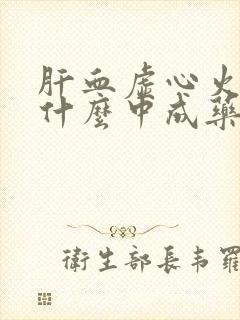 肝血虛心火
什麼中成藥
衛生部長韦羅